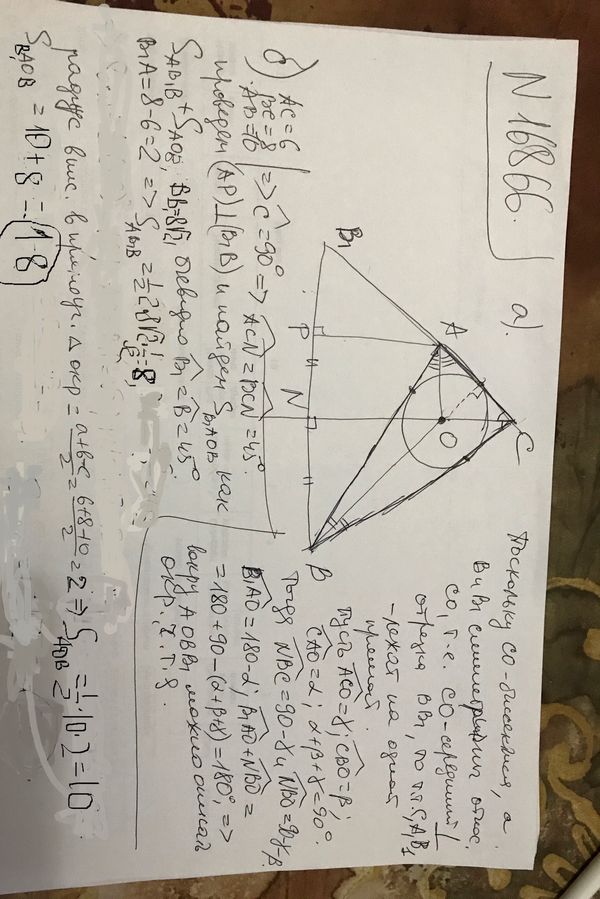 N 16866.
а).
C
A
B₁
O
P
N
B
Поскольку CO - биссектриса, а
B и B₁ симметричны относ.
CO, т.е. CO - середин. ⊥
отрезка BB₁, то т. C, A, B₁
- лежат на одной
прямой.
Пусть ACO = γ; CBO = β;
CAO = α; α+β+γ = 90°.
Тогда NBC = 90-γ и NBO = 90-γ-β.
B₁AO = 180-α; B₁AO + NBO =
= 180+90-(α+β+γ) = 180°, =>
вокруг AOBB₁ можно описать
окр. ч.т.д.
б) AC = 6
BC = 8
AB = 10 | => C = 90° => ACN = BCN = 45°
проведем (AP) ⊥ (B₁B) и найдем S B₁AOB как
S AB₁B + S AOB, BB₁ = 8√2, очевидно B₁ = B = 45°.
B₁A = 8-6 = 2 => S AB₁B = ½·2·8√2·1/√2 = 8;
радиус впис. в прямоуг. Δ окр = a+b-c/2 = 6+8-10/2 = 2 => S AOB = ½·10·2 = 10
S B₁AOB = 10+8 = 18